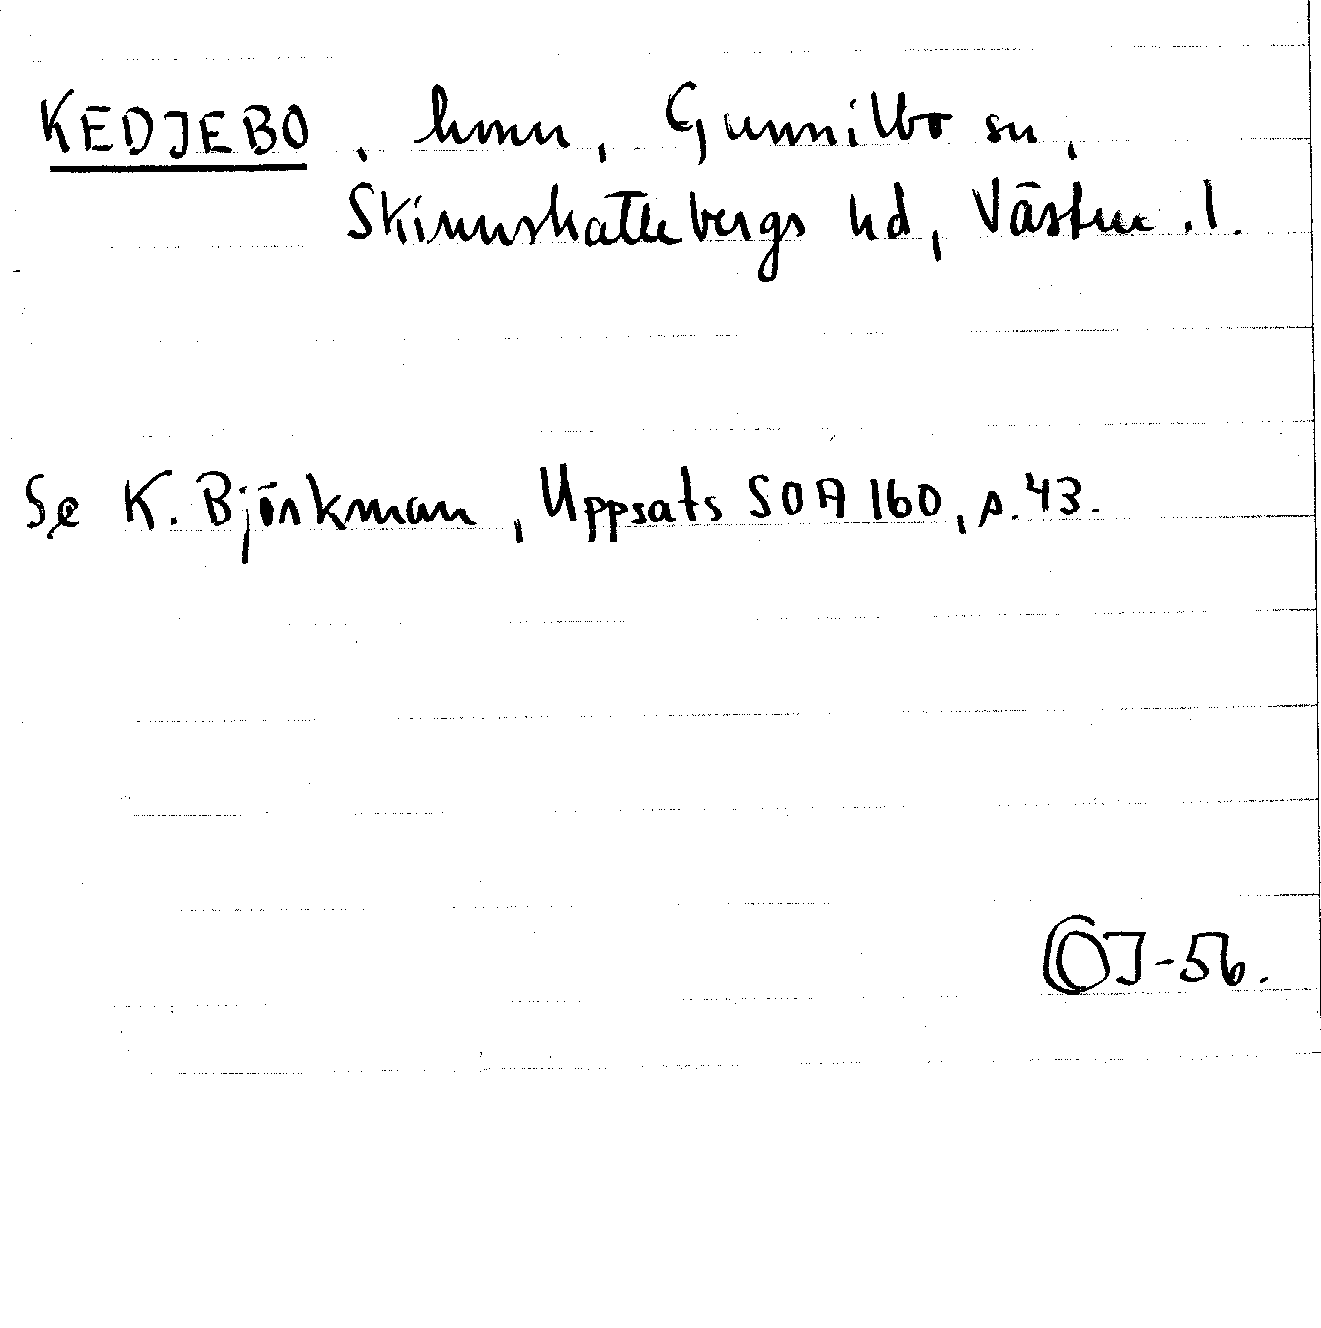 KEDJEBO, hmn, Gunnilbo sn,
Skinnskattebergs hd, Västm. l.
Se K. Björkman, Uppsats SOA 160, s. 43.
OJ-56.